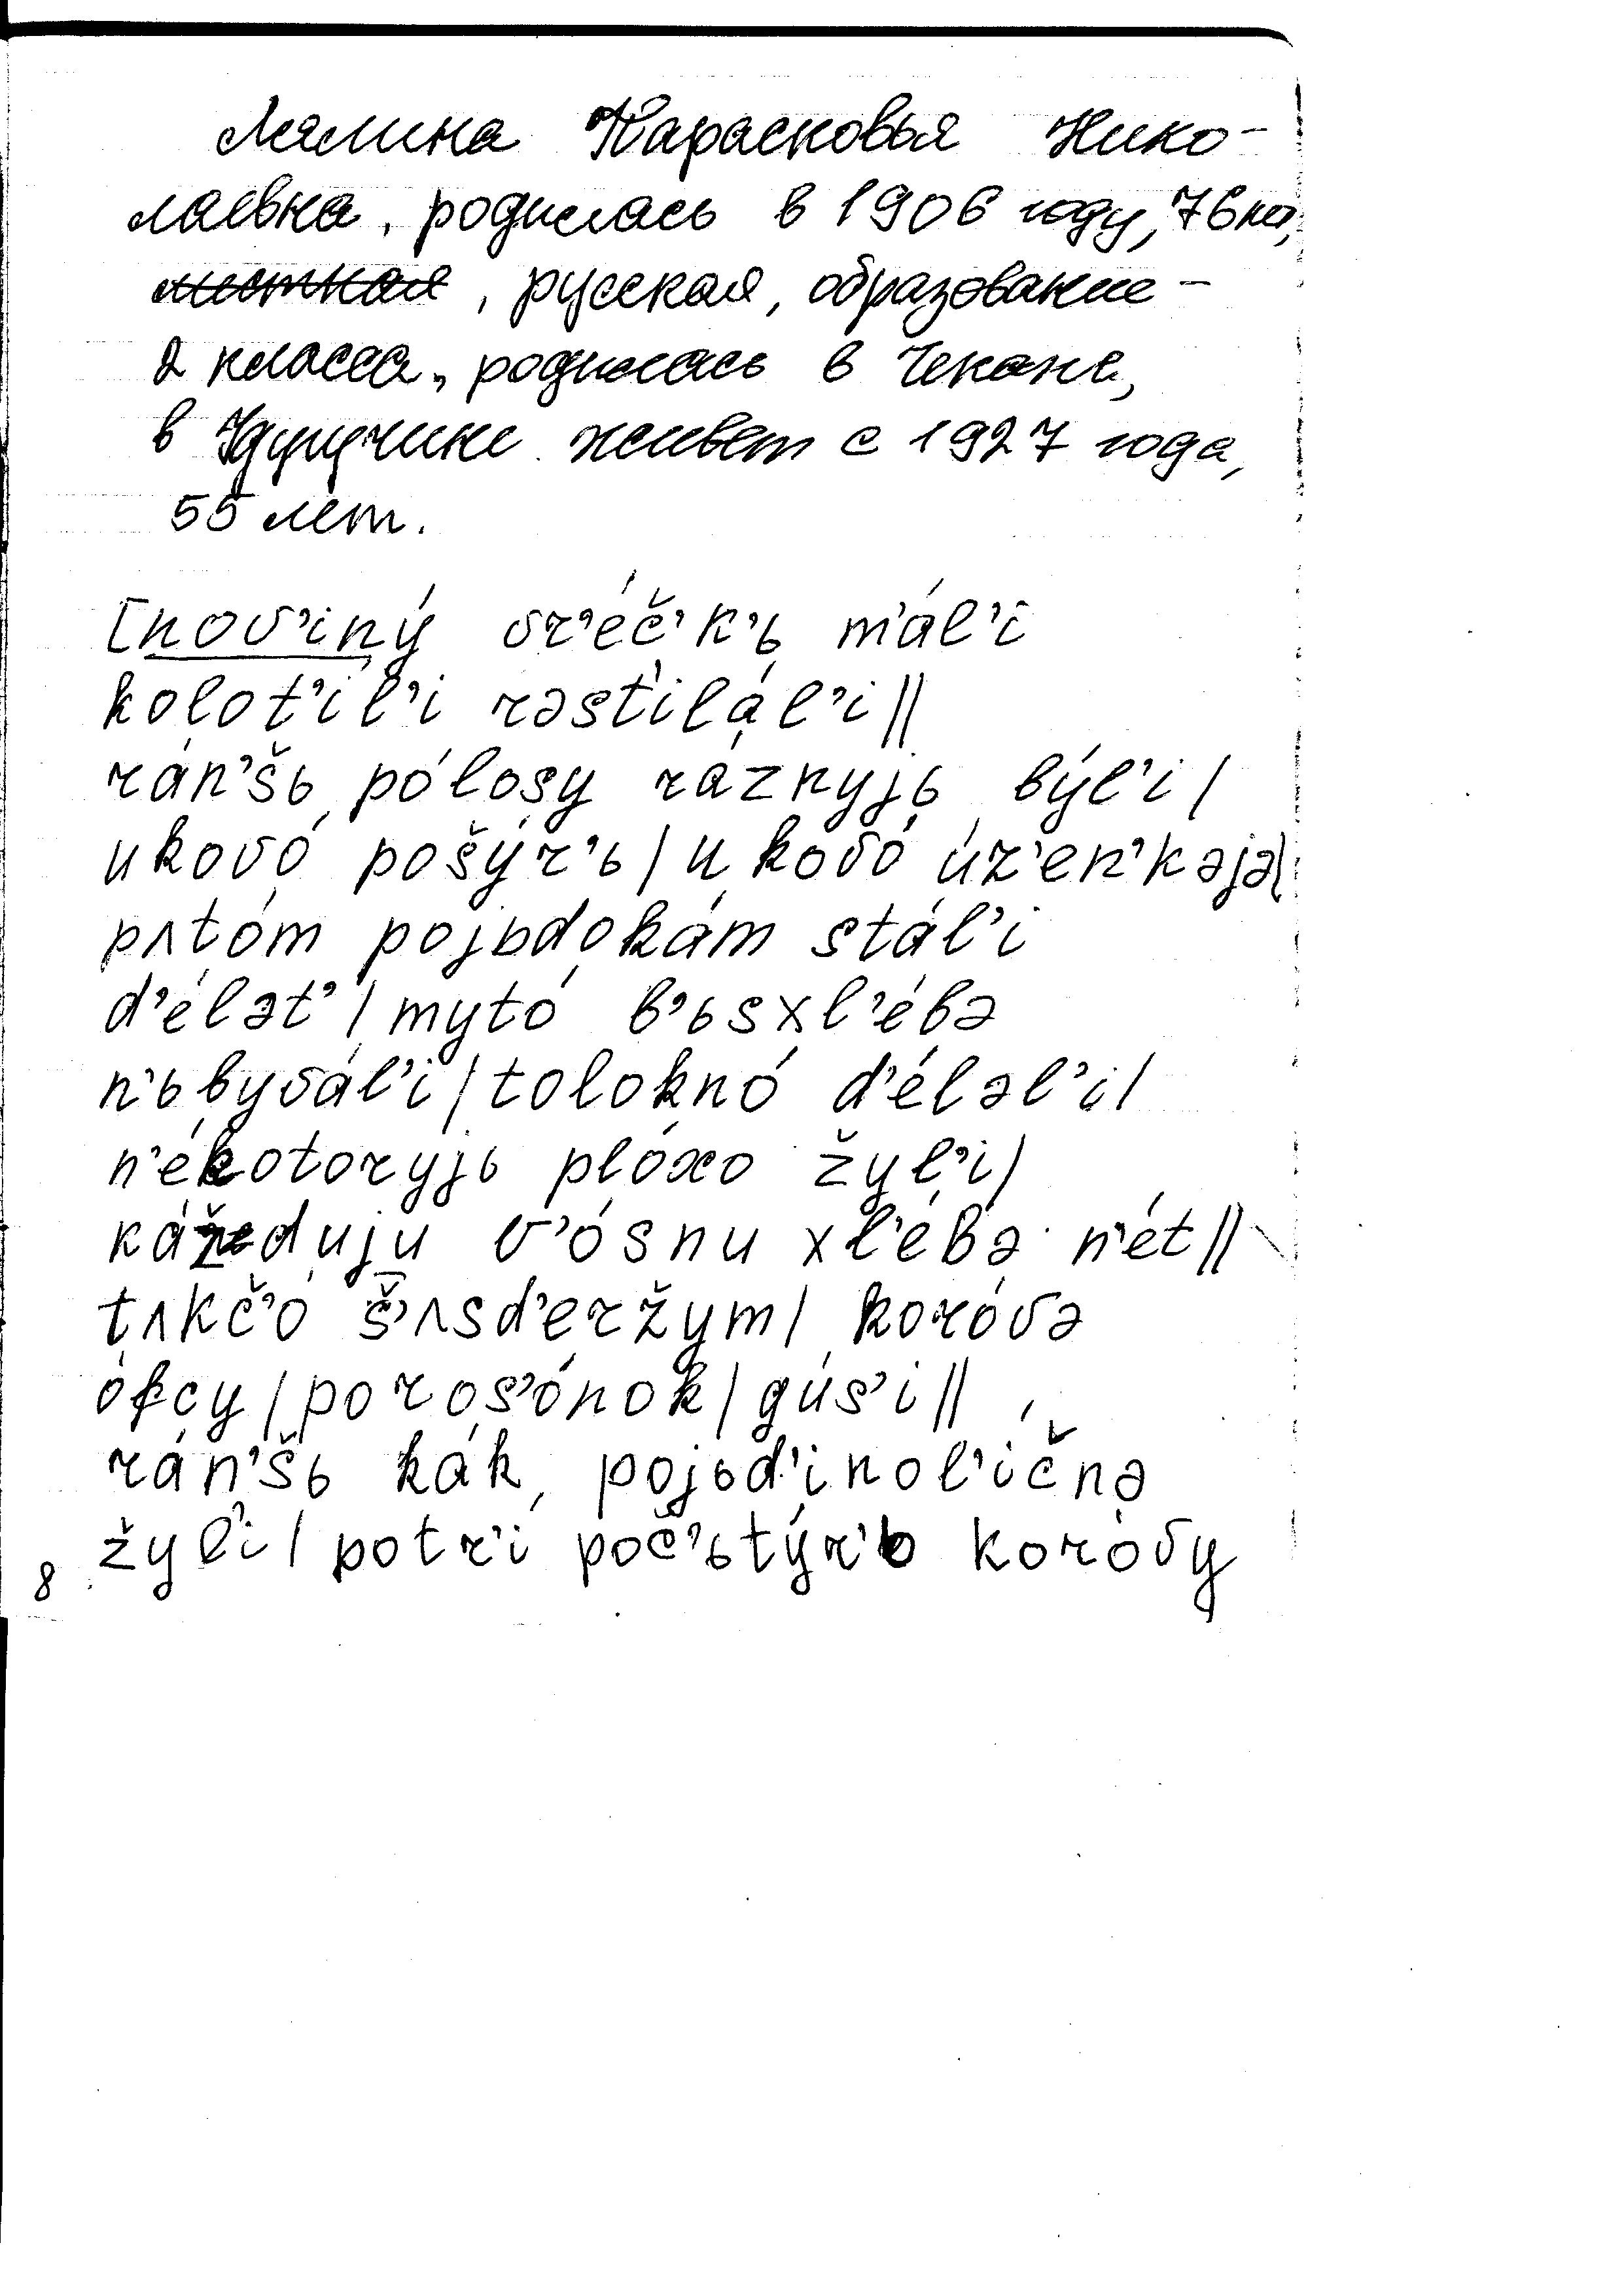 Лялина Парасковья Нико-
лаевна, родилась в 1906 году, 76 лет,
местная, русская, образование –
2 класса, родилась в Чекане,
в живет с 1927 года,
55 лет.
[nov'iný vr'éč'k'ь m'ál'i
kolot'íl'i rəst'ilál'i||
rán'šь pólosy ráznyjь býl'i|
ukovó pošýr'ь| u kovó úz'en'kəjə|
pʌtóm pojьdokám stál'i
d'élət'| mytó b'ьsxl'ébə
n'ьbyvál'i| toloknó d'éləl'i|
n'ékotoryjь plóxo žyl'i|
kážduju v'ósnu xl'ébə n'ét||
tʌkč'ó š'ʌsd'eržym| koróvə
ófcy| poros'ónok| gús'i||
rán'šь kák pojьd'inol'íčnə
žyl'i| potr'í poč'ьtýr'ь koróvy
8